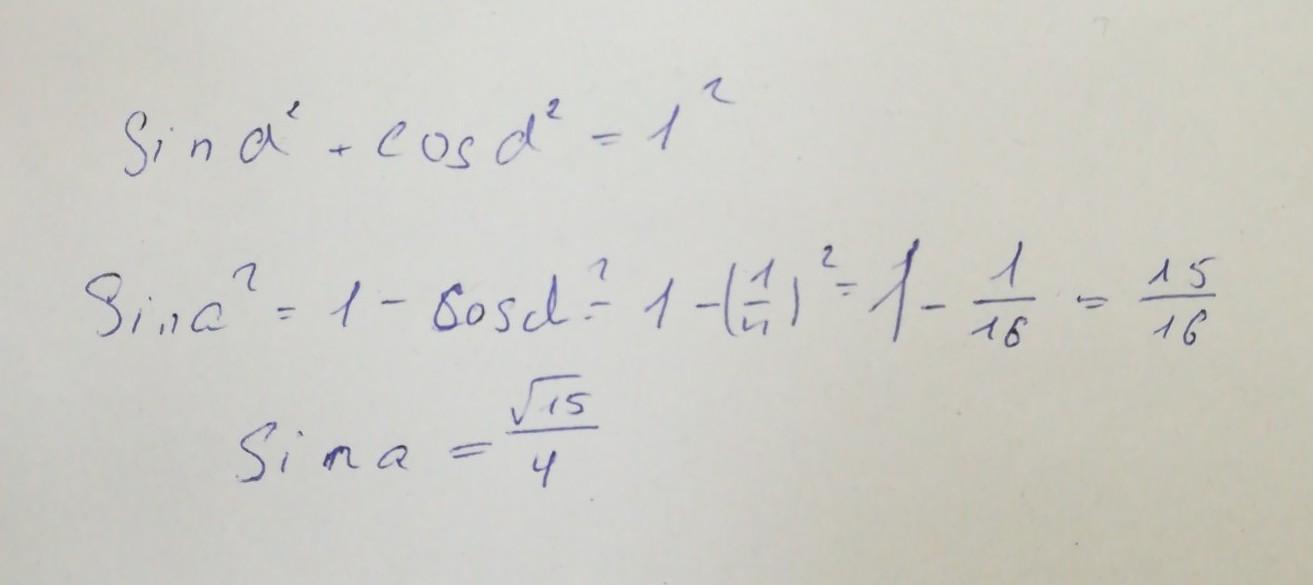 Sin α² + cos α² = 1²
Sin α² = 1 - cos α² = 1 - (1/4)² = 1 - 1/16 = 15/16
Sin α = √15/4